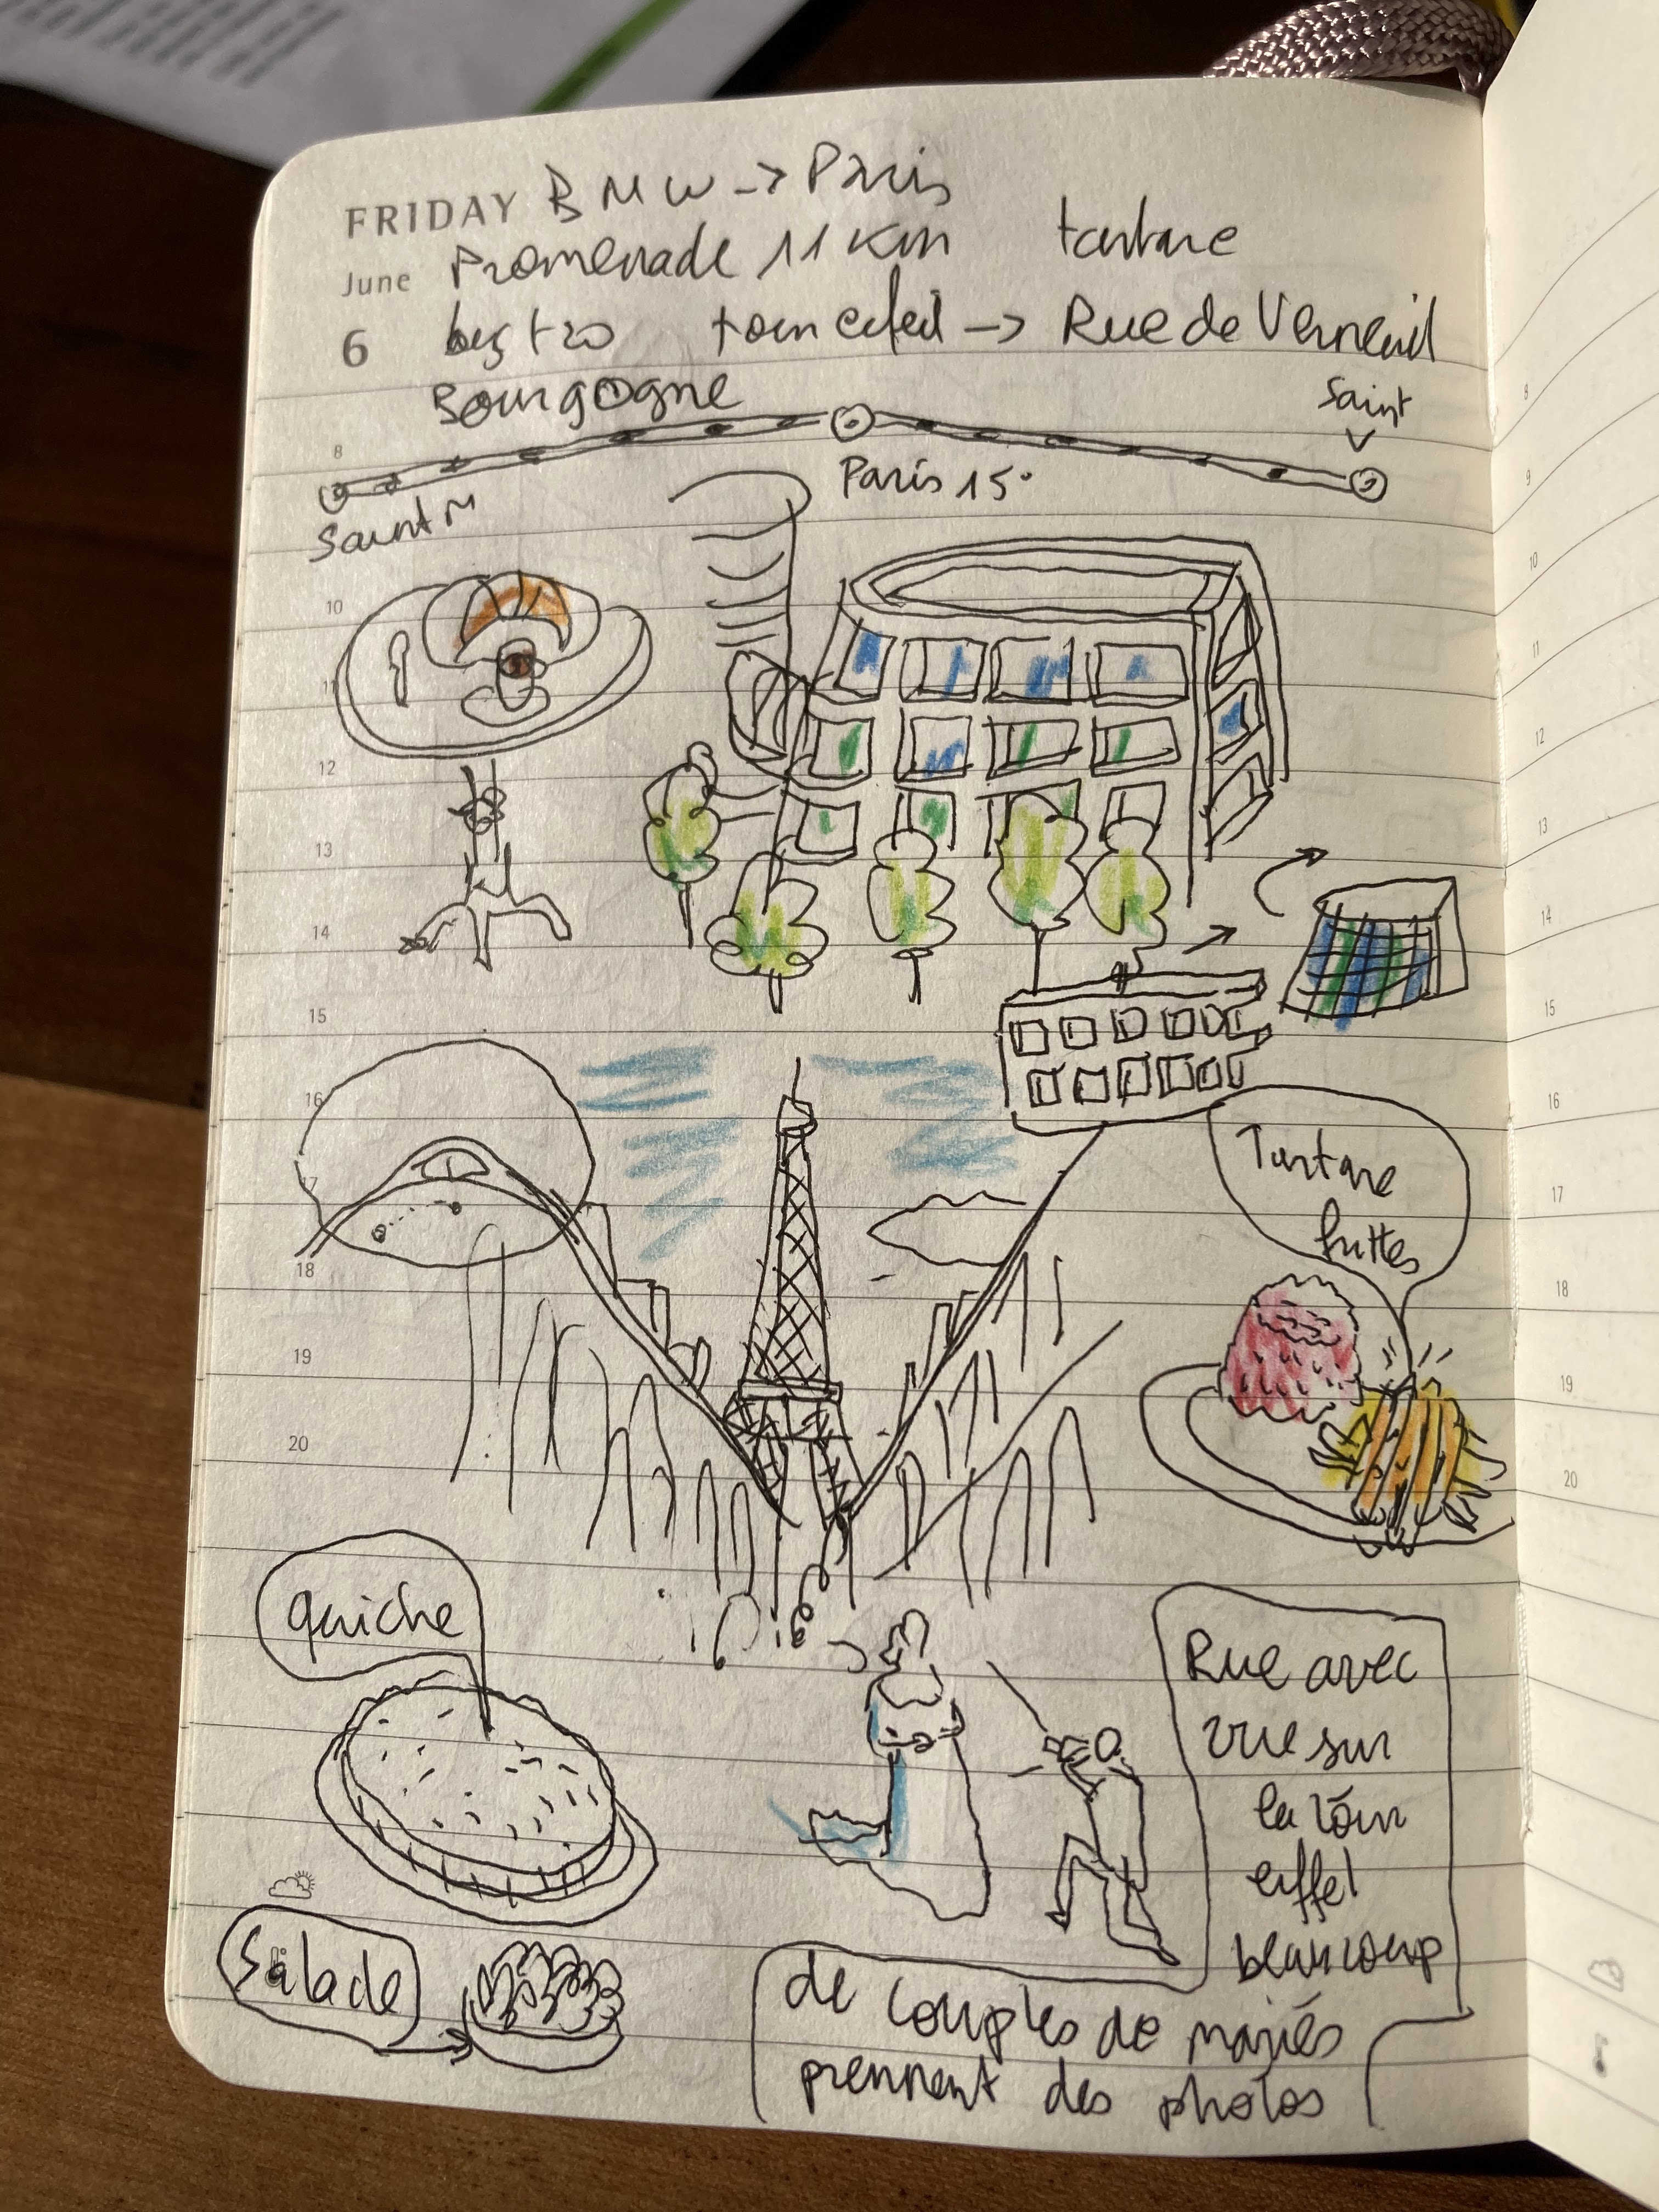 FRIDAY BMW -> Paris
June Promenade 11 Km tartare
6 bistro tour eifel -> Rue de Verneuil
Bourgogne
Saint
Paris 15°
Saint M
8
10
11
12
13
14
15
16
17
18
19
20
Tartare
frittes
quiche
Salade
Rue avec
vue sur
la tour
eiffel
beaucoup
de couples de mariés
prennent des photos
8
9
10
11
12
13
14
15
16
17
18
19
20